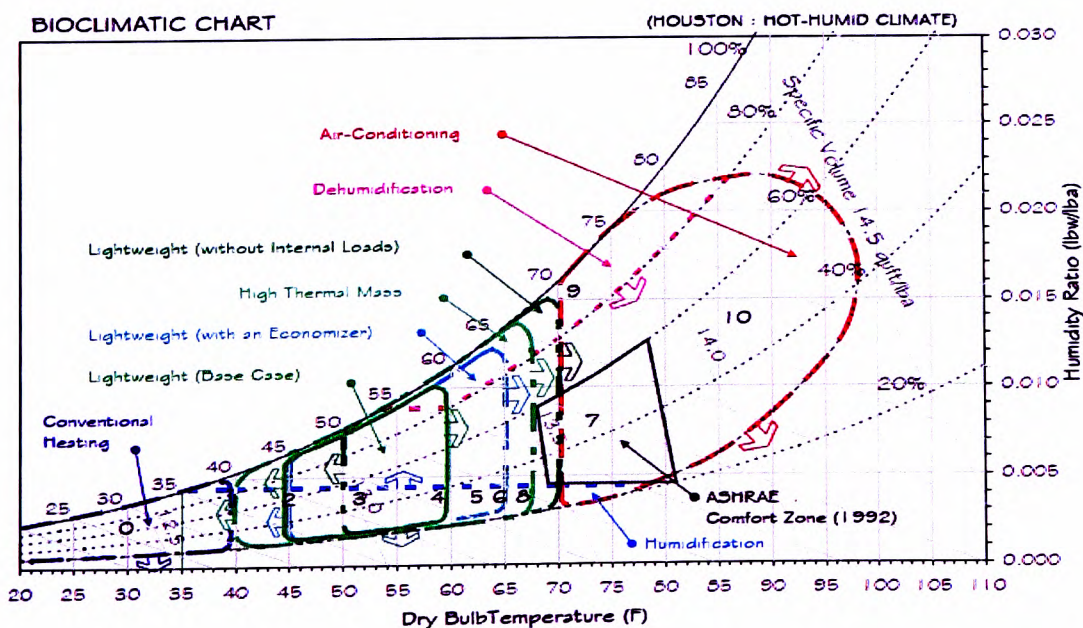 BIOCLIMATIC CHART
(HOUSTON : HOT-HUMID CLIMATE)
100%
85
80%
80
75
70
65
60
55
50
45
40
35
30
25
Specific Volume 14.5 quft/lba
60%
40%
20%
14.0
Air-Conditioning
Dehumidification
Lightweight (without Internal Loads)
High Thermal Mass
Lightweight (with an Economizer)
Lightweight (Base Case)
Conventional
Heating
0
2
3
4
5
6
8
9
7
10
ASHRAE
Comfort Zone (1992)
Humidification
0.030
0.025
0.020
0.015
0.010
0.005
0.000
Humidity Ratio (lbw/lba)
20 25 30 35 40 45 50 55 60 65 70 75 80 85 90 95 100 105 110
Dry BulbTemperature (F)